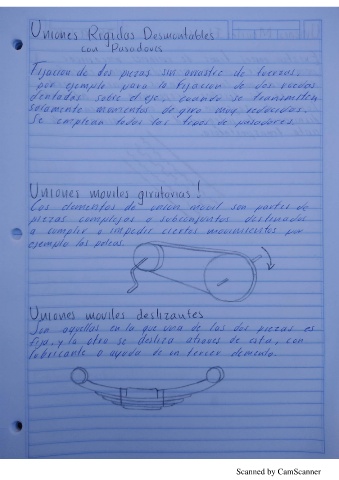 Uniones Rigidas Desmontables
con Pasadores
Fijacion de dos piezas sin arrastre de fuerzas,
por ejemplo para la fijacion de dos ruedas
dentadas sobre el eje, cuando se transmiten
solamente momentos de giro muy reducidos.
Se emplean todos los tipos de pasadores.
Uniones moviles giratorias!
Los elementos de union movil son partes de
piezas complejas o subconjuntos destinados
a cumplir o impedir ciertos movimientos por
ejemplo las poleas.
Uniones moviles deslizantes
Son aquellas en la que una de las dos piezas es
fija, y la otra se desliza atraves de esta, con
lubricante o ayuda de un tercer elemento.
Scanned by CamScanner